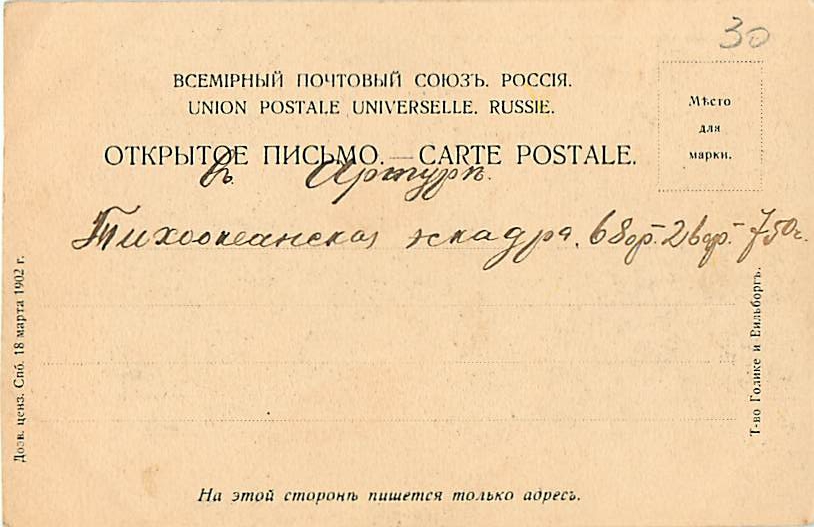 30
ВСЕМІРНЫЙ ПОЧТОВЫЙ СОЮЗЪ. РОССІЯ.
UNION POSTALE UNIVERSELLE. RUSSIE.
Мѣсто
для
марки.
ОТКРЫТОЕ ПИСЬМО. — CARTE POSTALE.
Артуръ.
Тихоокеанская эскадра. 6 бор. 2 вор. 750
Дозв. ценз. Спб. 18 марта 1902 г.
Т-во Голике и Вильборгъ.
На этой сторонѣ пишется только адресъ.